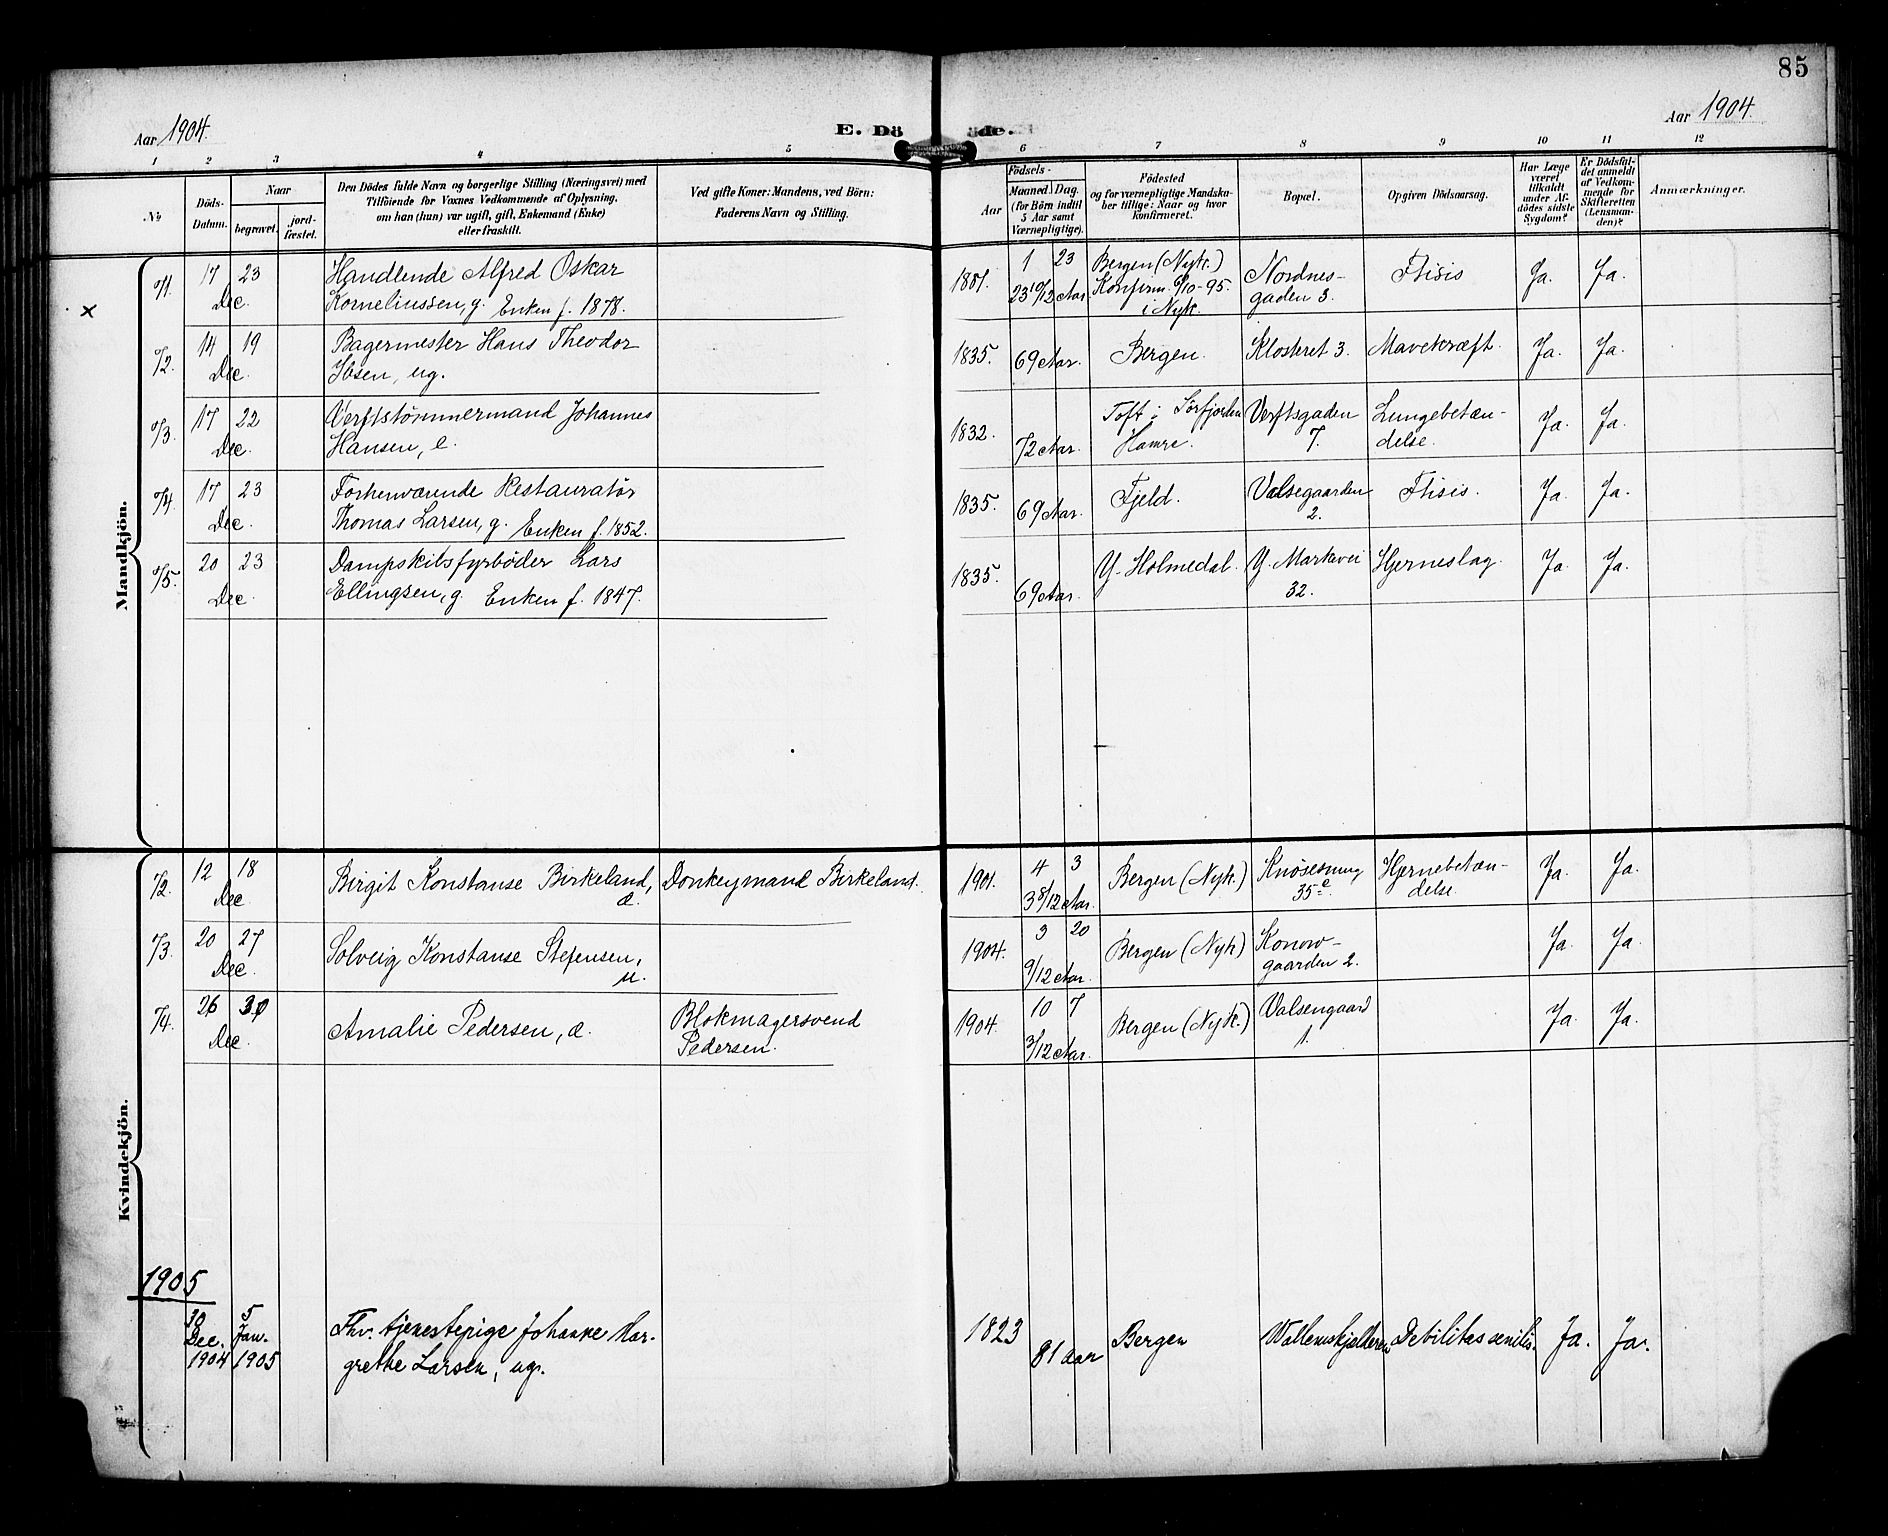 85
Aar 1904.
E. Dö
öde.
Aar 1904.
1 2 3 4 5 6 7 8 9 10 11 12
No
Döds-
Datum.
Naar
begravet.
jord-
fæstet.
Den Dödes fulde Navn og borgerlige Stilling (Næringsvei) med
Tilföiende for Voxnes Vedkommende af Oplysning,
om han (hun) var ugift, gift, Enkemand (Enke)
eller fraskilt.
Ved gifte Koner: Mandens, ved Börn:
Faderens Navn og Stilling.
Aar
Födsels-
Maaned Dag.
(for Börn indtil
5 Aar samt
Værnepligtige).
Födested
og for værnepligtige Mandska-
ber tillige: Naar og hvor
konfirmeret.
Bopæl.
Opgiven Dödsaarsag.
Har Læge
været
tilkaldt
under Af-
dödes sidste
Sygdom?
Er Dödsfal-
det anmeldt
af Vedkom-
mende for
Skifteretten
(Lensman-
den)?
Anmærkninger.
Mandkjön.
×
17 23
Dec.
Handlende Alfred Oskar
Korneliussen, g. Enken f. 1878.
1881.
1 23
23 10/12 Aar.
Bergen (Nyk.)
Konfirm. 6/10-95.
i Nyk.
Nordnes-
gaden 3.
Ftisis
Ja. Ja.
14 19
Dec.
Bagermester Hans Theodor
Ibsen, ug.
1835.
69 Aar.
Bergen.
Klosteret 3.
Mavekræft.
Ja. Ja.
17 22
Dec.
Verftstømmermand Johannes
Hansen, e.
1832.
72 Aar.
Toft i Sørfjorden
Hamre.
Verftsgaden
7.
Lungebetæn-
delse.
Ja. Ja.
17 23
Dec.
Forhenværende Restauratør
Thomas Larsen, g. Enken f. 1852.
1835.
69 Aar.
Fjeld.
Valsegaarden
2.
Ftisis.
Ja. Ja.
20 23
Dec.
Dampskibsfyrbøder Lars
Ellingsen, g. Enken f. 1847.
1835.
69 Aar.
Y. Holmedal.
Y. Markvei
32.
Hjerneslag.
Ja. Ja.
Kvindekjön.
12 18
Dec.
Birgit Konstanse Birkeland,
æ.
Donkeymand Birkeland.
1901.
4 3
3 8/12 Aar.
Bergen (Nyk.)
Knøsesmug
35 e.
Hjernebetæn-
delse.
Ja. Ja.
20 27
Dec.
Solveig Konstanse Stefensen,
u.
1904.
3 20
9/12 Aar.
Bergen (Nyk)
Konow-
gaarden 2.
Ja. Ja.
26 30
Dec.
Amalie Pedersen, æ.
Blokmagersvend
Pedersen.
1904.
10 7
3/12 Aar.
Bergen (Nyk.)
Valsengaard
1.
Ja. Ja.
1905
30
Dec.
1904
5
Jan.
1905
Fhv. tjenestepige Johanne Mar-
grethe Larsen, ug.
1823
81 aar
Bergen
Wallemskjelderen
Debilitas senilis.
Ja. Ja.